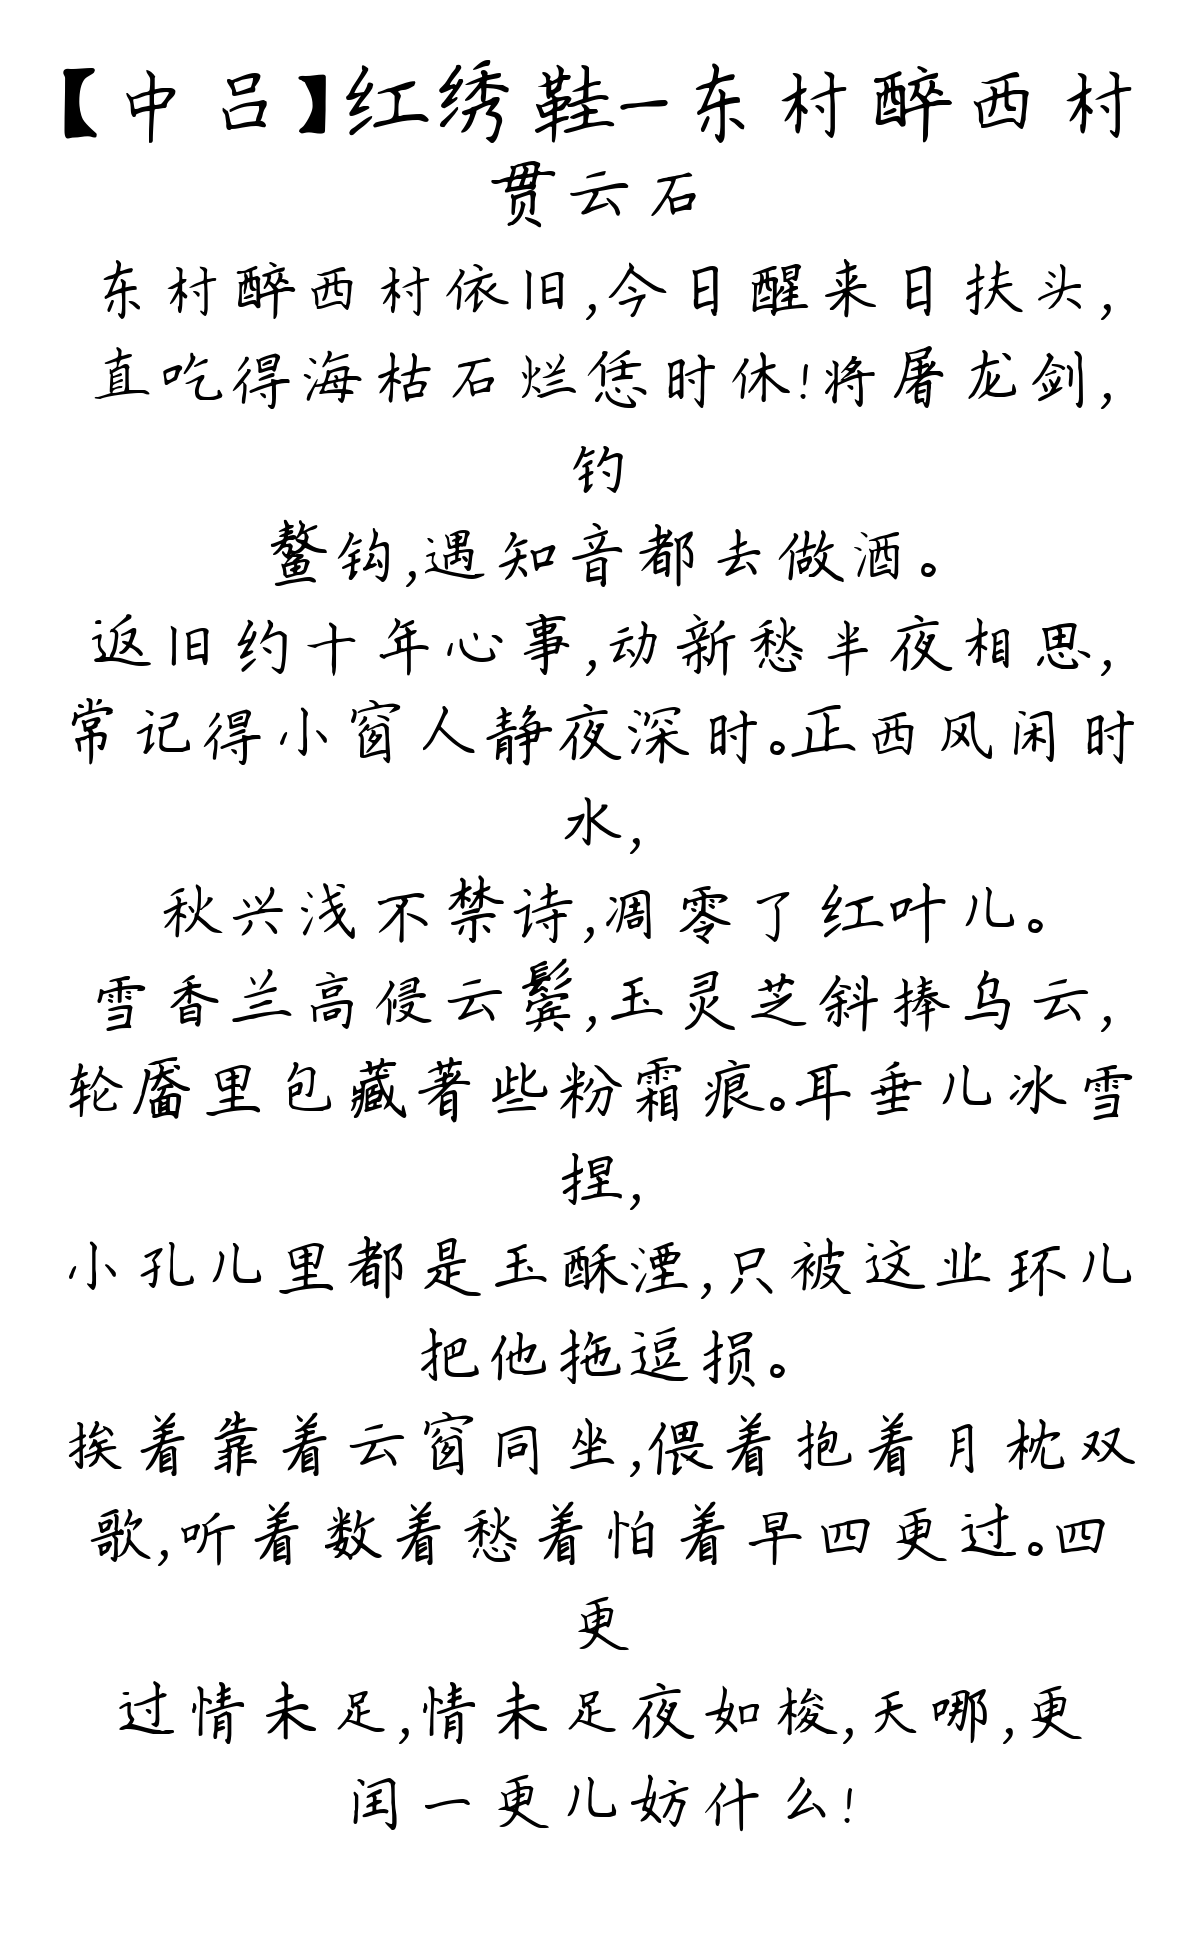 【中吕】红绣鞋-东村醉西村
贯云石
东村醉西村依旧,今日醒来日扶头,
直吃得海枯石烂恁时休!将屠龙剑,
钓
鳌钩,遇知音都去做酒。
返旧约十年心事,动新愁半夜相思,
常记得小窗人静夜深时。正西风闲时
水,
秋兴浅不禁诗,凋零了红叶儿。
雪香兰高侵云鬓,玉灵芝斜捧乌云,
轮靥里包藏著些粉霜痕。耳垂儿冰雪
捏,
小孔儿里都是玉酥湮,只被这业环儿
把他拖逗损。
挨着靠着云窗同坐,偎着抱着月枕双
歌,听着数着愁着怕着早四更过。四
更
过情未足,情未足夜如梭,天哪,更
闰一更儿妨什么!